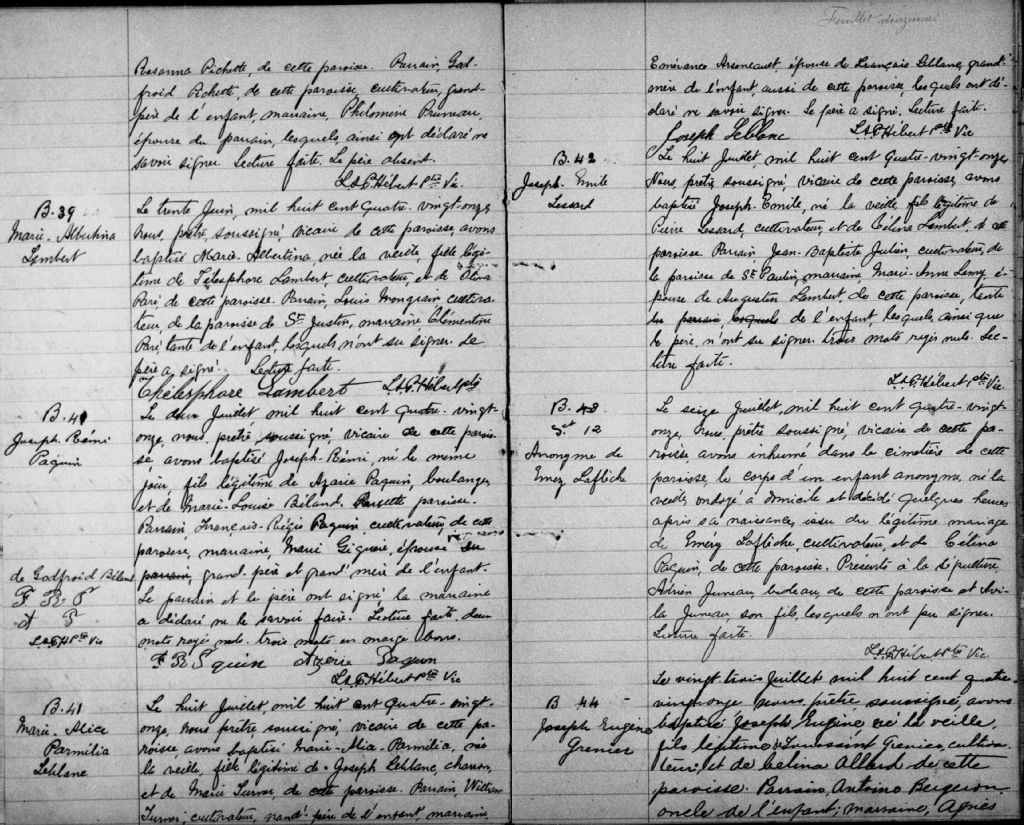 Rosanna Pichette, de cette paroisse. Parrain, God-
froid Pichette, de cette paroisse, cultivateur, grand-
père de l'enfant, marraine, Philomène Pruneau,
épouse du parrain, lesquels ainsi ont déclaré ne
savoir signer. Lecture faite. Le père absent.
L.A.P. Hébert Ptre Vic.
B. 39
Marie-Albertina
Lambert
Le trente Juin, mil huit cent quatre-vingt-onze,
Nous, prêtre, soussigné, vicaire de cette paroisse, avons
baptisé Marie-Albertina, née la veille, fille légi-
time de Télesphore Lambert, cultivateur, et de Oliva
Paré, de cette paroisse. Parrain, Louis Mongrain, cultiva-
teur, de la paroisse de St Justin, marraine, Clémentine
Paré, tante de l'enfant, lesquels n'ont su signer. Le
père a signé. Lecture faite.
Thélesphore Lambert L.A.P. Hébert ptre
B. 40
Joseph Rémi
Paquin
Le deux Juillet mil huit cent quatre-vingt-
onze, nous, prêtre soussigné, vicaire de cette parois-
se, avons baptisé Joseph-Rémi, né le même
jour, fils légitime de Azarie Paquin, boulanger,
et de Marie-Louise Béland, de cette paroisse.
Parrain, François-Régis Paquin, cultivateur, de cette
paroisse, marraine, Marie Giguère, épouse
de Godfroid Béland
F R P
A P
L.A.P.H. Ptre Vic
parrain, grand-père et grand'mère de l'enfant.
Le parrain et le père ont signé, la marraine
a déclaré ne le savoir faire. Lecture faite, deux
mots rayés nuls. trois mots en marge bons.
F R Pquin Azarie Paquin
L.A.P. Hébert Ptre Vic
B. 41
Marie-Alice
Parmilia
Leblanc
Le huit Juillet, mil huit cent quatre-vingt-
onze, Nous prêtre soussigné, vicaire de cette pa-
roisse avons baptisé Marie-Alice-Parmilia, née
la veille, fille légitime de Joseph Leblanc,
et de Marie Turner, de cette paroisse. Parrain, William
Turner, cultivateur, grand-père de l'enfant, marraine,
Feuillet douzième
Émérance Arseneault, épouse de François Leblanc, grand'
mère de l'enfant, aussi de cette paroisse, lesquels ont dé-
claré ne savoir signer. Le père a signé. Lecture faite.
Joseph Leblanc L.A.P. Hébert Ptre Vic
B. 42
Joseph-Emile
Lessard
Le huit Juillet, mil huit cent quatre-vingt-onze,
Nous, prêtre, soussigné, vicaire de cette paroisse, avons
baptisé Joseph-Emile, né la veille, fils légitime de
Pierre Lessard, cultivateur, et de Célina Lambert, de cette
paroisse. Parrain, Jean-Baptiste Julien, cultivateur, de
la paroisse de St Paulin, marraine Marie-Anne Lemy, é-
pouse de Augustin Lambert de cette paroisse, tante
du parrain, lesquels de l'enfant, lesquels, ainsi que
le père, n'ont su signer. trois mots rayés nuls. Lec-
ture faite.
L.A.P. Hébert, ptre Vic.
B. 43
S.et 12
Anonyme de
Emery Laflèche
Le seize Juillet, mil huit cent quatre-vingt-
onze, Nous, prêtre soussigné, vicaire de cette pa-
roisse avons inhumé dans le cimetière de cette
paroisse, le corps d'un enfant anonyme, né la
veille, ondoyé à domicile et décédé quelques heures
après sa naissance, issu du légitime mariage
de Eméry Laflèche, cultivateur, et de Célina
Paquin, de cette paroisse. Présents à la sépulture,
Adrien Juneau, bedeau, de cette paroisse et Avi-
la Juneau, son fils, lesquels n'ont pu signer.
Lecture faite.
L.A.P. Hébert Ptre Vic.
B 44
Joseph Eugène
Grenier
Le vingt-trois Juillet mil huit cent quatre-
vingt-onze nous prêtre soussigné, avons
baptisé Joseph Eugène né la veille,
fils légitime de Toussaint Grenier, cultiva-
teur, et de Célina Allard de cette
paroisse. Parrain, Antoine Bergeron,
oncle de l'enfant; marraine, Agnès